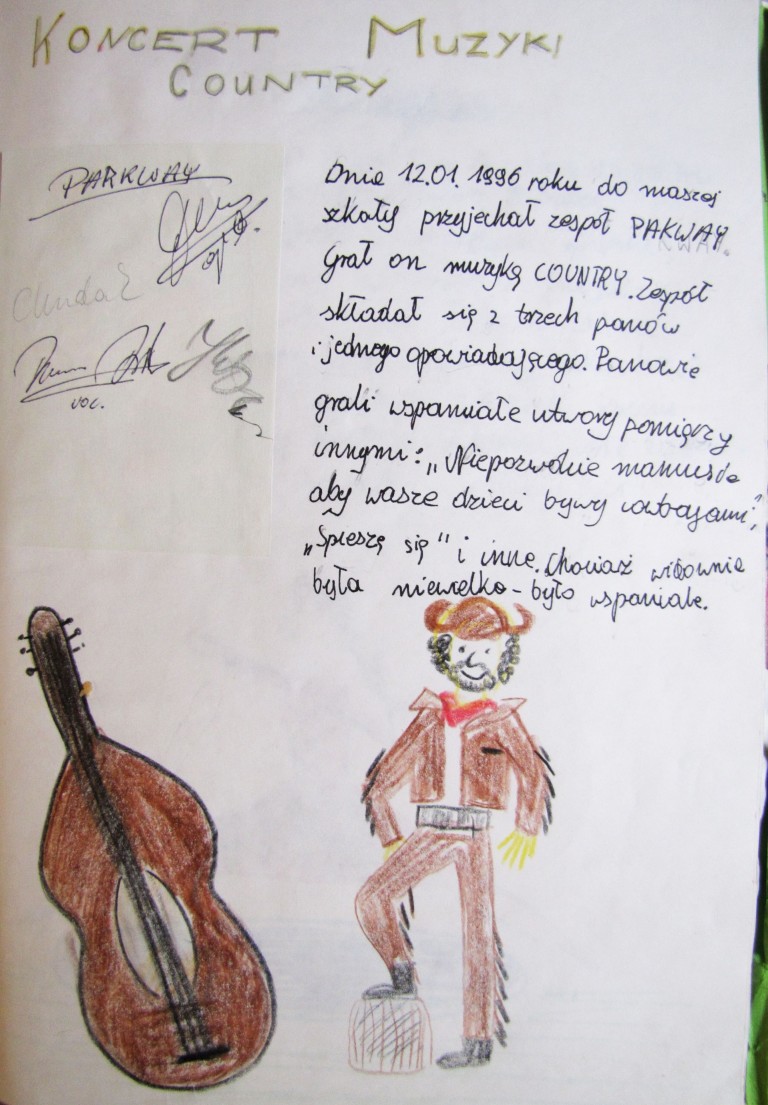 KONCERT MUZYKI
COUNTRY
PARKWAY
voc.
Dnia 12.01.1996 roku do naszej
szkoły przyjechał zespół PAKWAY
KWAY.
Grał on muzykę COUNTRY. Zespół
składał się z trzech panów
i jednego opowiadającego. Panowie
grali wspaniałe utwory pomięrzy
innymi: „Niepozwólcie mamusie
aby wasze dzieci bywy cowbojami",
„Śpieszę się" i inne. Chociaż widownia
była niewielka - było wspaniale.